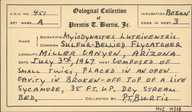 Oological Collection
of
Permits T. Burtis, Jr.
SET MARK 451
SET NO. A
INCUBATION BEGUN
EGGS IN SET 3
NAME MYIODYNASTES LUTEIVENTRIS
SULFUR-BELLIED FLYCATCHER
LOCALITY MILLER CANYON, ARIZONA
DATE JULY 3rd, 1967 COMPOSED OF
SMALL TWIGS, PLACED IN AN OPEN
CAVITY IN A BROKEN-OFF TOP OF A LIVE
SYCAMORE, 35 FT. UP, DRY STREAM
BED. P.T. Burtis